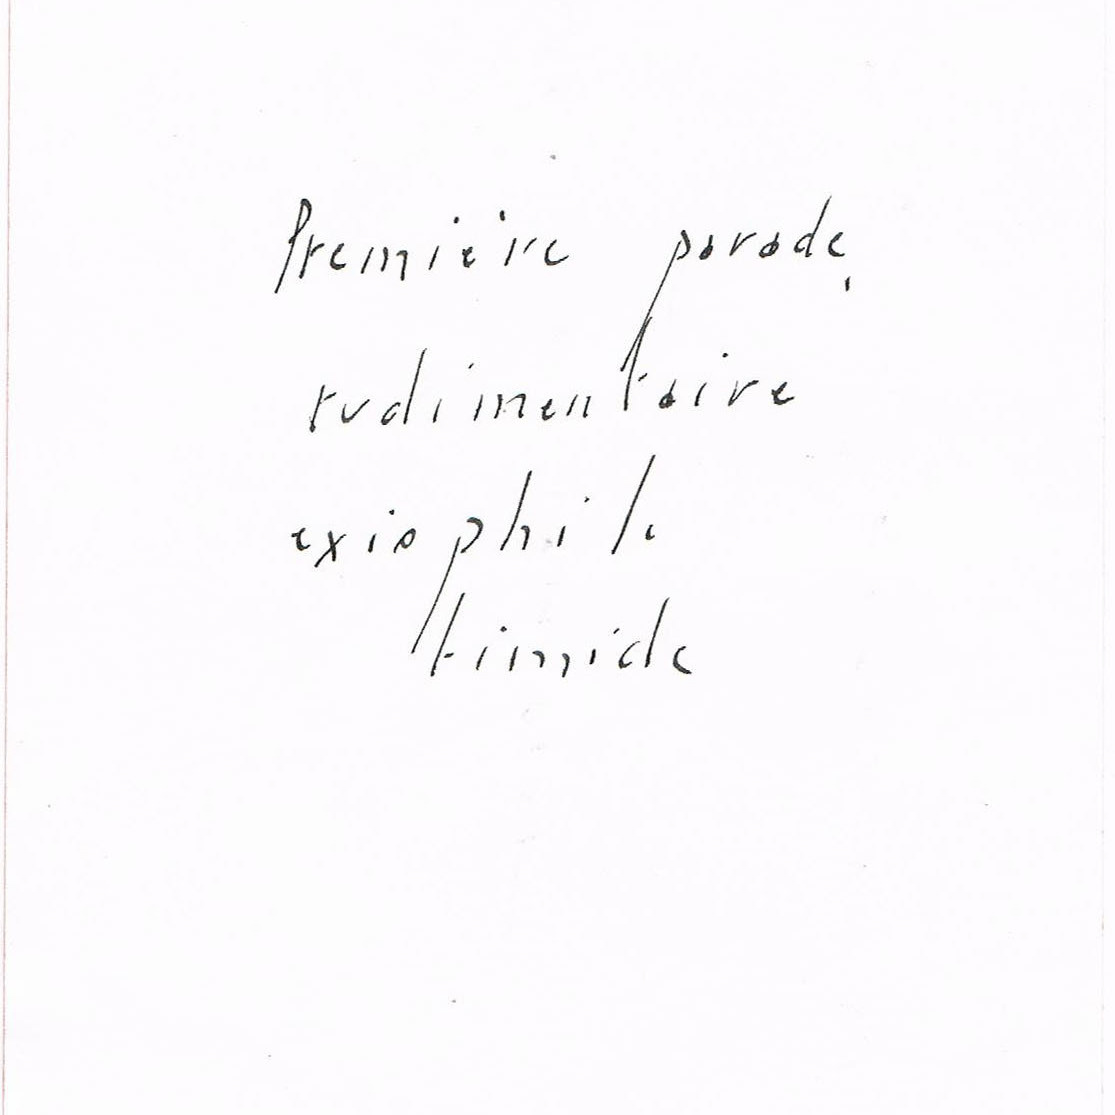 Première parade,
rudimentaire
exiophile
timide